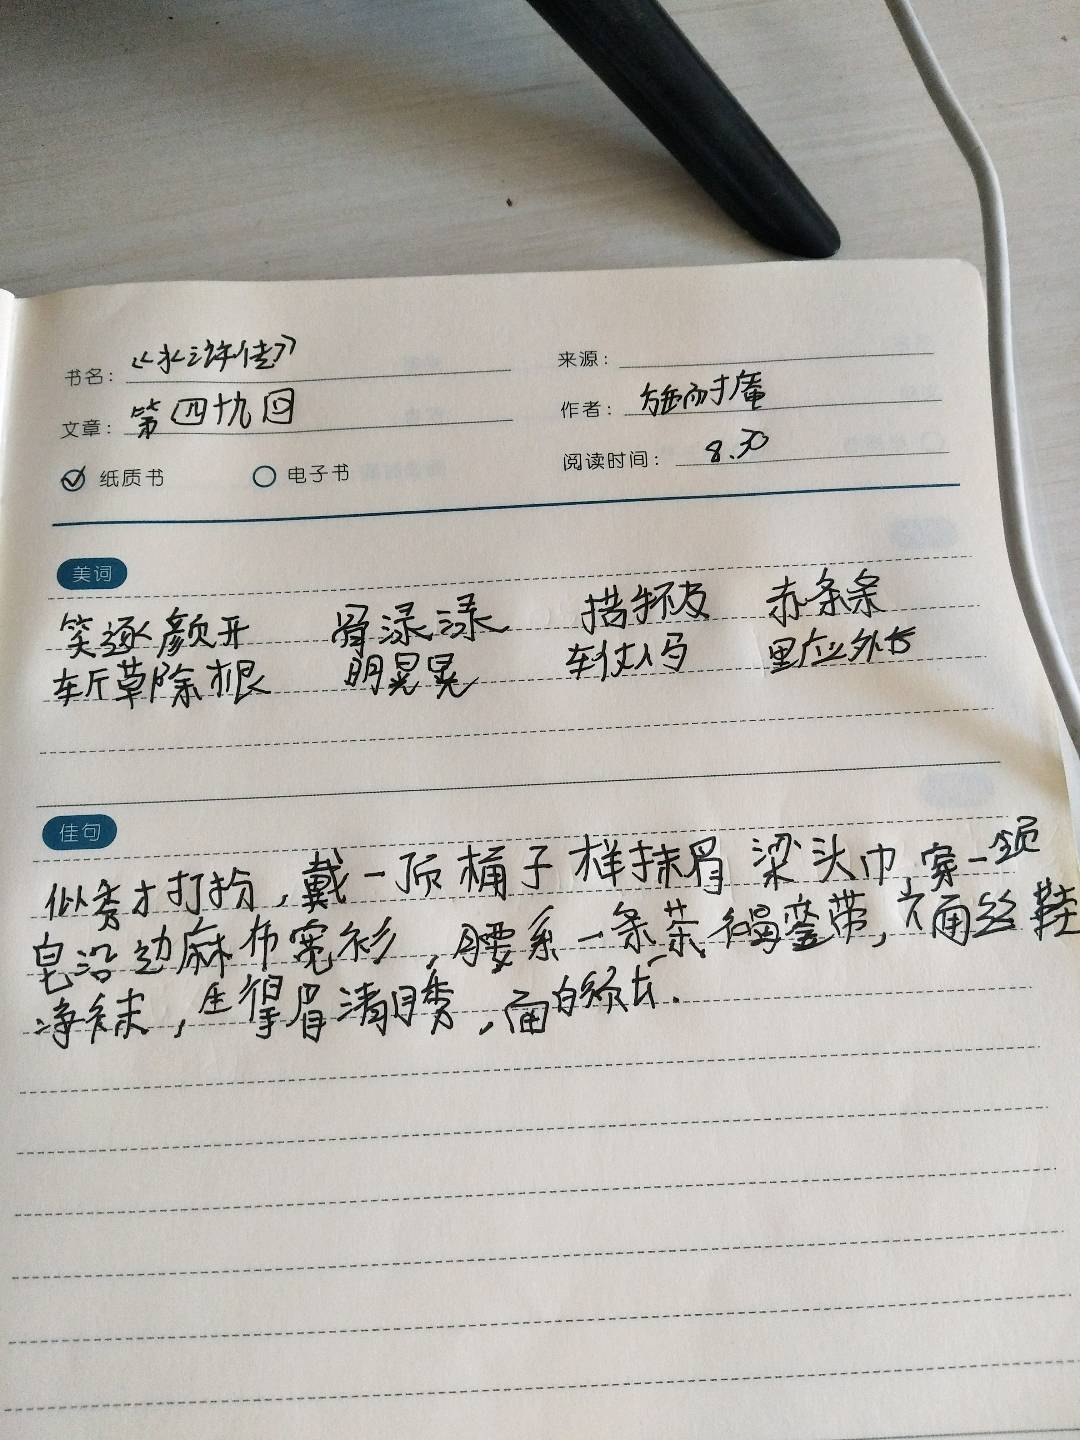 书名：《水浒传》
来源：
文章：第四十九回
作者：施耐庵
纸质书 电子书
阅读时间：8.30
美词
笑逐颜开 骨渌渌 措手不及 赤条条
斩草除根 明晃晃 车仗人马 里应外合
佳句
似秀才打扮，戴一顶桶子样抹眉梁头巾，穿一领
皂沿边麻布宽衫，腰系一条茶褐銮带，六面丝鞋
净袜，生得眉清目秀，面白须长.